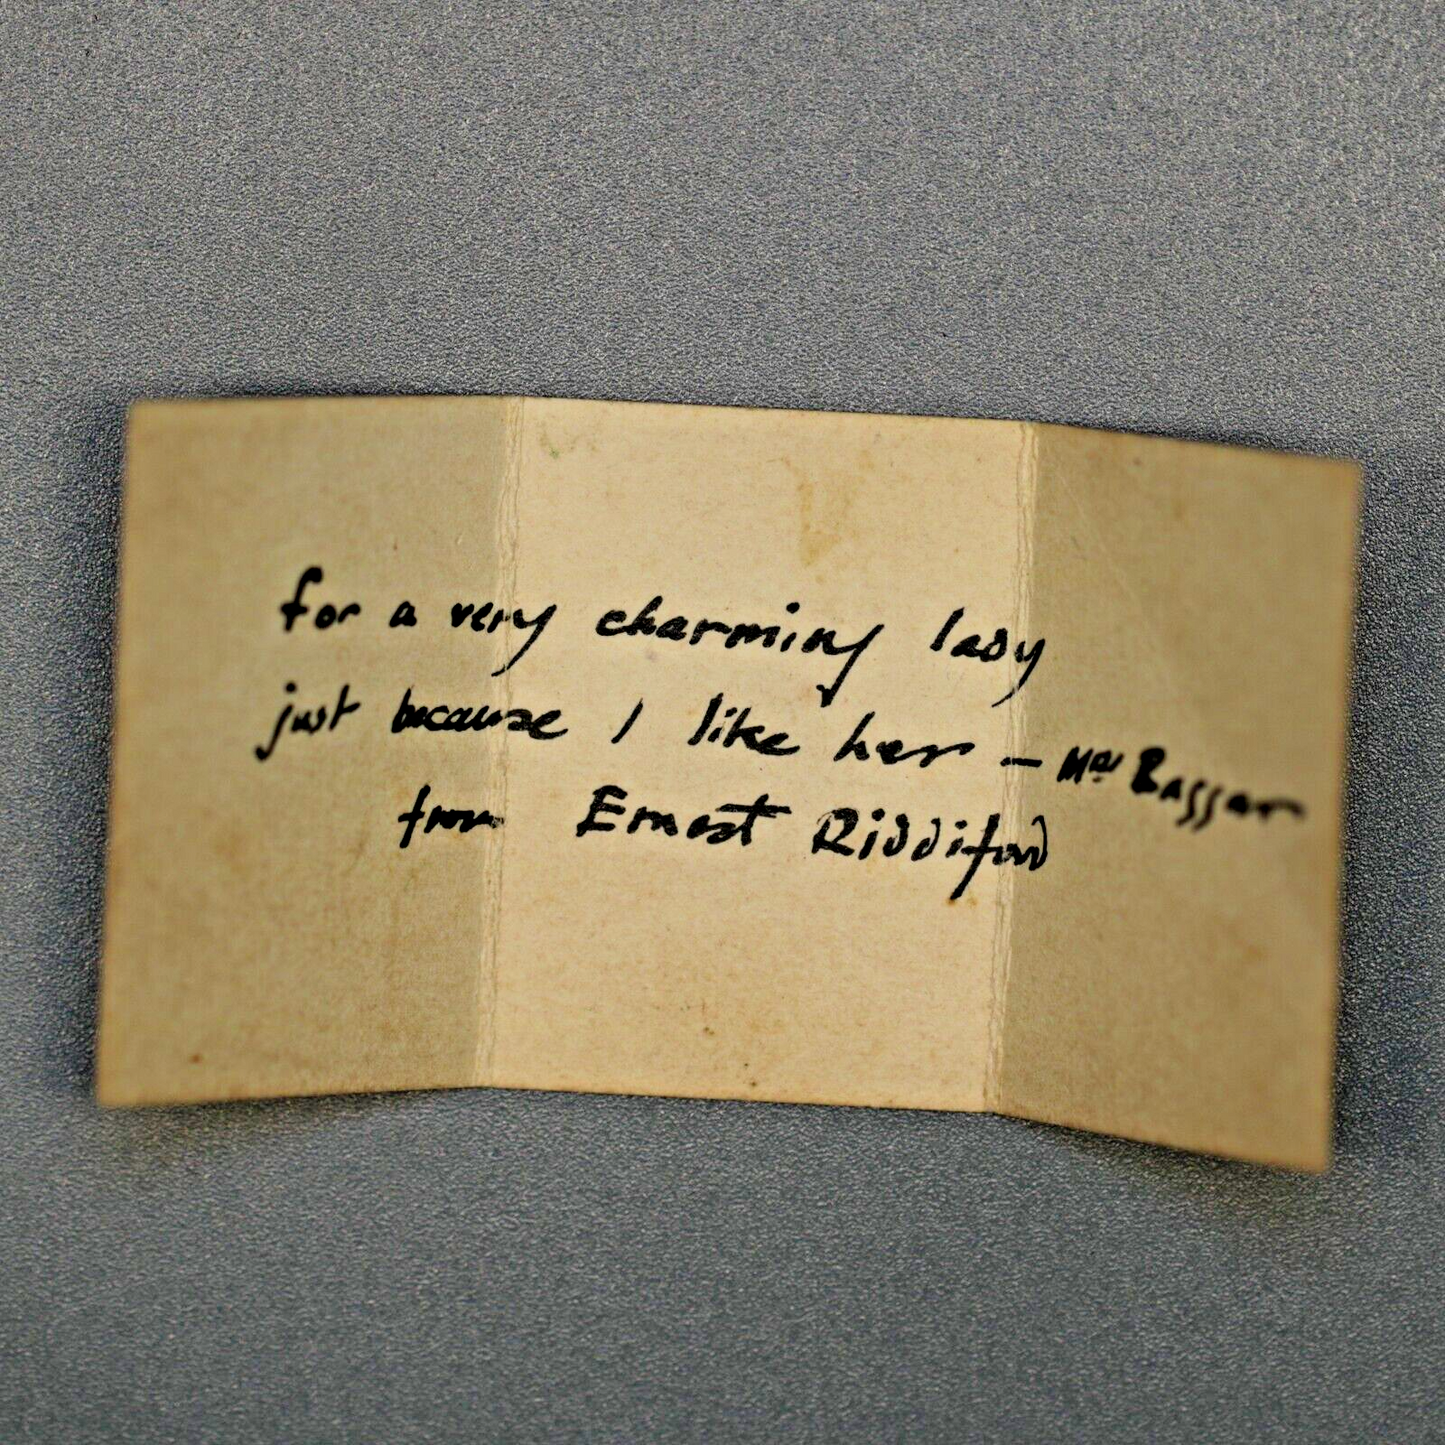 for a very charming lady
just because I like her – Mrs
from Ernest Riddiford